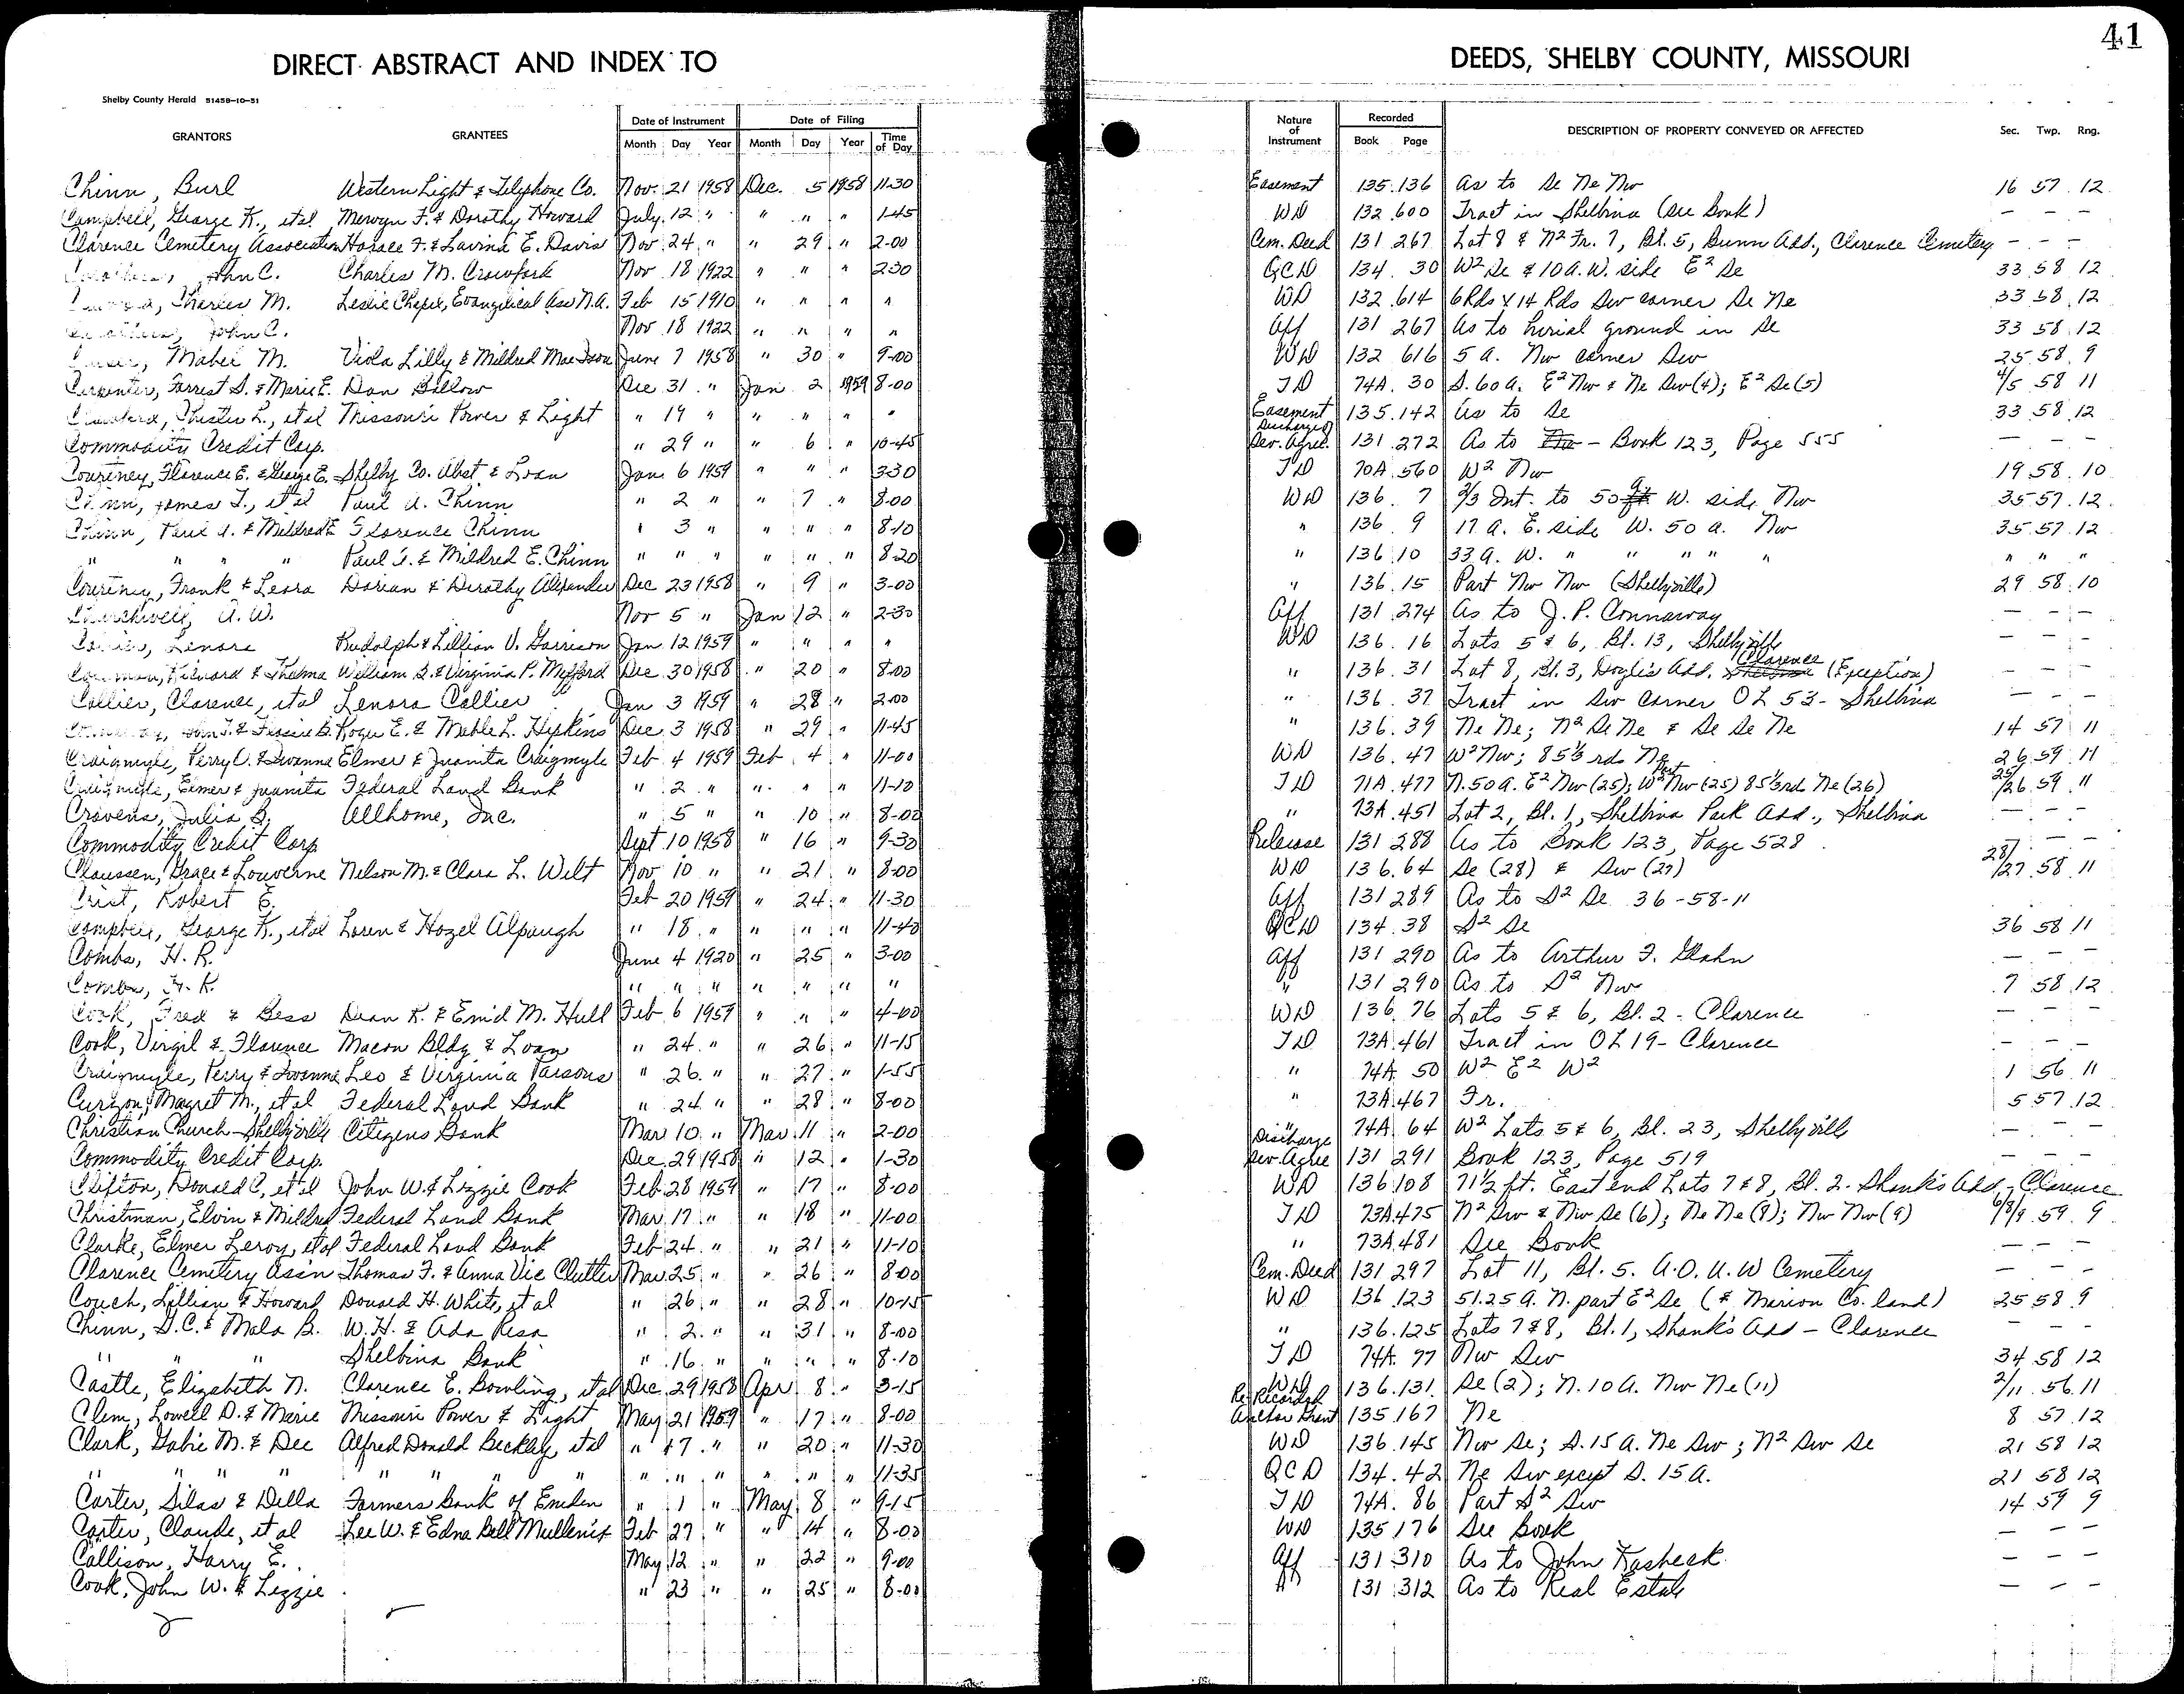 41
DIRECT ABSTRACT AND INDEX TO DEEDS, SHELBY COUNTY, MISSOURI
Shelby County Herald 51458-10-51
GRANTORS GRANTEES Date of Instrument Month Day Year Date of Filing Month Day Year Time of Day Nature of Instrument Recorded Book Page DESCRIPTION OF PROPERTY CONVEYED OR AFFECTED Sec. Twp. Rng.
Chinn, Burl Western Light & Telephone Co. Nov. 21 1958 Dec. 5 1958 11-30 Easement 135.136 As to Se Ne Nw 16 57 12
Campbell, George K., et al Merwyn F. & Dorothy Howard July 12 " " " " 1-45 WD 132.600 Tract in Shelbina (See Book) – – –
Clarence Cemetery Association Horace F. & Lavina E. Davis Nov. 24 " " 29 " 2-00 Cem. Deed 131 267 Lot 8 & N2 Fr. 7, Bl. 5, Bunn Add., Clarence Cemetery – – –
John C. Charles M. Crawford Nov 18 1922 " " " 2-30 QCD 134. 30 W2 Se & 10 A. W. side E2 Se 33 58 12
Charles M. Leslie Chapel, Evangelical Ass N.A. Feb 15 1910 " " " " WD 132.614 6 Rds x 14 Rds Sw corner Se Ne 33 58 12
John C. Nov 18 1922 " " " " Aff 131 267 As to burial ground in Se 33 58 12
Mabel M. Viola Lilly & Mildred Mae June 7 1958 " 30 " 9-00 WD 132 616 5 a. Nw corner Sw 25 58 9
Carpenter, Forrest S. & Marie E. Dan Billow Dec 31 " Jan 2 1959 8-00 TD 74A. 30 S. 60 a. E2 Nw & Ne Sw (4); E2 Se (5) 4/5 58 11
Crawford, Chester L., et al Missouri Power & Light " 19 " " " " " Easement 135.142 As to Se 33 58 12
Commodity Credit Corp. " 29 " " 6 " 10-45 Discharge of Sev. Agree. 131 272 As to – Book 123, Page 555 – – –
Courtney, Florence E. & George E. Shelby Co. Abst & Loan Jan 6 1959 " " " 3-30 TD 70A.560 W2 Nw 19 58 10
Chinn, James T., et al Paul A. Chinn " 2 " " 7 " 8-00 WD 136. 7 2/3 Int. to 50 a W. side Nw 35 57 12
Chinn, Paul A. & Mildred E. Florence Chinn " 3 " " " " 8-10 " 136 9 17 a. E. side W. 50 a. Nw 35 57 12
" " " Paul A. & Mildred E. Chinn " " " " " " 8-20 " 136.10 33 a. W. " " " " " " " "
Courtney, Frank & Leora Dorian & Dorothy Alexander Dec 23 1958 " 9 " 3-00 " 136.15 Part Nw Nw (Shelbyville) 29 58 10
Churchwell, A. W. Nov 5 " Jan 12 " 2-30 Aff 131.274 As to J. P. Connaway – – –
Lenora Rudolph & Lillian V. Garrison Jan 12 1959 " " " " WD 136. 16 Lots 5 & 6, Bl. 13, Shelbyville – – –
& Thelma William S. & Virginia P. Mefford Dec 30 1958 " 20 " 8-00 " 136.31 Lot 8, Bl. 3, Doyle's Add. Clarence (Exception) – – –
Collier, Clarence, et al Lenora Collier Jan 3 1959 " 28 " 2-00 " 136. 37 Tract in Sw corner OL 53 - Shelbina – – –
Roger E. & Mable L. Hipkins Dec 3 1958 " 29 " 11-45 " 136.39 Ne Ne; N2 Se Ne & Se Se Ne 14 57 11
Craigmyle, Perry C. & Iwanna Elmer & Juanita Craigmyle Feb 4 1959 Feb 4 " 11-00 WD 136.47 W2 Nw; 85 1/3 rds Ne 26 59 11
Craigmyle, Elmer & Juanita Federal Land Bank " 2 " " " " 11-10 TD 71A.477 N. 50 a. E2 Nw (25); Part W2 Nw (25) 85 1/3 rd Ne (26) 25/26 59 11
Cravens, Julia B. Allhome, Inc. " 5 " " 10 " 8-00 " 73A.451 Lot 2, Bl. 1, Shelbina Park Add., Shelbina – – –
Commodity Credit Corp Sept 10 1958 " 16 " 9-30 Release 131 288 As to Book 123, Page 528 – –
Claussen, Grace & Louverne Nelson M. & Clara L. Wilt Nov 10 " " 21 " 8-00 WD 136.64 Se (28) & Sw (27) 28/27 58 11
Crist, Robert E. Feb 20 1959 " 24 " 11-30 Aff 131 289 As to S2 Se 36-58-11
Campbell, George K., et al Loren & Hazel Alpaugh " 18 " " " " 11-40 QCD 134.38 S2 Se 36 58 11
Combs, H. R. June 4 1920 " 25 " 3-00 Aff 131 290 As to Arthur F. Glahn – – –
Combs, H. R. " " " " " " " " 131 290 As to S2 Nw 7 58 12
Cook, Fred & Bess Dean R. & Enid M. Hull Feb 6 1959 " " " 4-00 WD 136.76 Lots 5 & 6, Bl. 2 - Clarence – – –
Cook, Virgil & Florence Macon Bldg & Loan " 24 " " 26 " 11-15 TD 73A.461 Tract in OL 19 - Clarence – – –
Craigmyle, Perry & Iwanna Leo & Virginia Parsons " 26 " " 27 " 1-55 " 74A. 50 W2 E2 W2 1 56 11
Curzon, Magret M., et al Federal Land Bank " 24 " " 28 " 8-00 " 73A.467 Fr. 5 57 12
Christian Church - Shelbyville Citizens Bank Mar 10 " Mar 11 " 2-00 " 74A 64 W2 Lots 5 & 6, Bl. 23, Shelbyville – – –
Commodity Credit Corp. Dec 29 1958 " 12 " 1-30 Discharge Sev. Agree 131 291 Book 123, Page 519 – – –
Clifton, Donald C, et al John W. & Lizzie Cook Feb 28 1959 " 17 " 8-00 WD 136.108 71 1/2 ft. East end Lots 7 & 8, Bl. 2 - Shank's Add, - Clarence
Christman, Elvin & Mildred Federal Land Bank Mar 17 " " 18 " 11-00 TD 73A.475 N2 Sw & Nw Se (6); Ne Ne (8); Nw Nw (9) 6/8/9 59 9
Clarke, Elmer Leroy, et al Federal Land Bank Feb 24 " " 21 " 11-10 " 73A.481 See Book – – –
Clarence Cemetery Ass'n Thomas F. & Anna Vie Clutter Mar 25 " " 26 " 8-00 Cem. Deed 131 297 Lot 11, Bl. 5. A.O.U.W Cemetery – – –
Couch, Lillian & Howard Donald H. White, et al " 26 " " 28 " 10-15 WD 136.123 51.25 a. N. part E2 Se (& Marion Co. land) 25 58 9
Chinn, S.C. & Mala B. W. H. & Ada Resa " 2 " " 31 " 8-00 " 136.125 Lots 7 & 8, Bl. 1, Shank's Add - Clarence – – –
" " " Shelbina Bank " 16 " " " " 8-10 TD 74A. 77 Nw Sw 34 58 12
Castle, Elizabeth N. Clarence E. Bowling, et al Dec 29 1958 Apr 8 " 3-15 WD 136.131 Se (2); N. 10 a. Nw Ne (11) 2/11 56 11
Clem, Lowell D. & Marie Missouri Power & Light May 21 1959 " 17 " 8-00 Re-Recorded Anchor Grant 135.167 Ne 8 57 12
Clark, Gabie M. & Dee Alfred Donald Beckley, et al " 7 " " 20 " 11-30 WD 136.145 Nw Se; S. 15 a. Ne Sw; N2 Sw Se 21 58 12
" " " " " " " " " " " " " " 11-35 QCD 134.42 Ne Sw except S. 15 a. 21 58 12
Carter, Silas & Della Farmers Bank of Emden " 1 " May 8 " 9-15 TD 74A. 86 Part S2 Sw 14 59 9
Carter, Claude, et al Lee W. & Edna Bell Mullenix Feb 27 " " 14 " 8-00 WD 135.176 See Book – – –
Callison, Harry E. May 12 " " 22 " 9-00 Aff 131.310 As to John Kasbeck – – –
Cook, John W. & Lizzie " 23 " " 25 " 8-00 Aff 131.312 As to Real Estate – – –